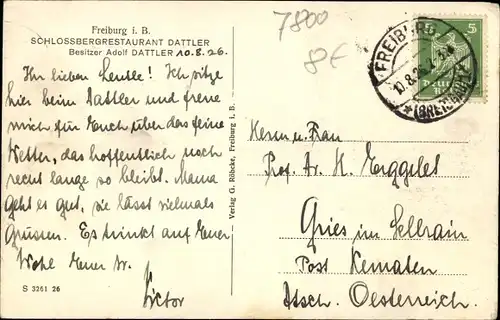 Freiburg i. B.
SCHLOSSBERGRESTAURANT DATTLER
Besitzer Adolf DATTLER 10.8.26.
7800
8€
Ihr lieben Leutle! Ich sitze
hier beim Dattler und freue
mich für Euch über das feine
Wetter, das hoffentlich noch
recht lange so bleibt. Mama
geht es gut, sie lässt vielmals
grüssen. Es trinkt auf Euer
Wohl Euer tr.
Victor
S 3261 26
Verlag G. Röbcke, Freiburg i. B.
FREIBURG
10.8.26
(BREISGAU)
5
Herrn u. Frau
Prof. Dr. H.
Gries im Sellrain
Post Kematen
Dtsch. Oesterreich.